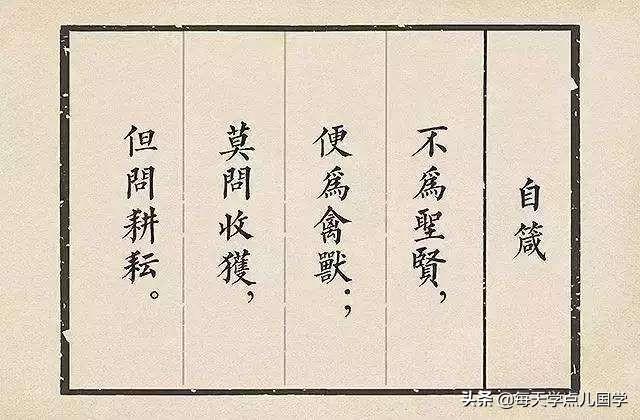 自箴
不為聖賢，
便為禽獸；
莫問收獲，
但問耕耘。
头条 @每天学点儿国学